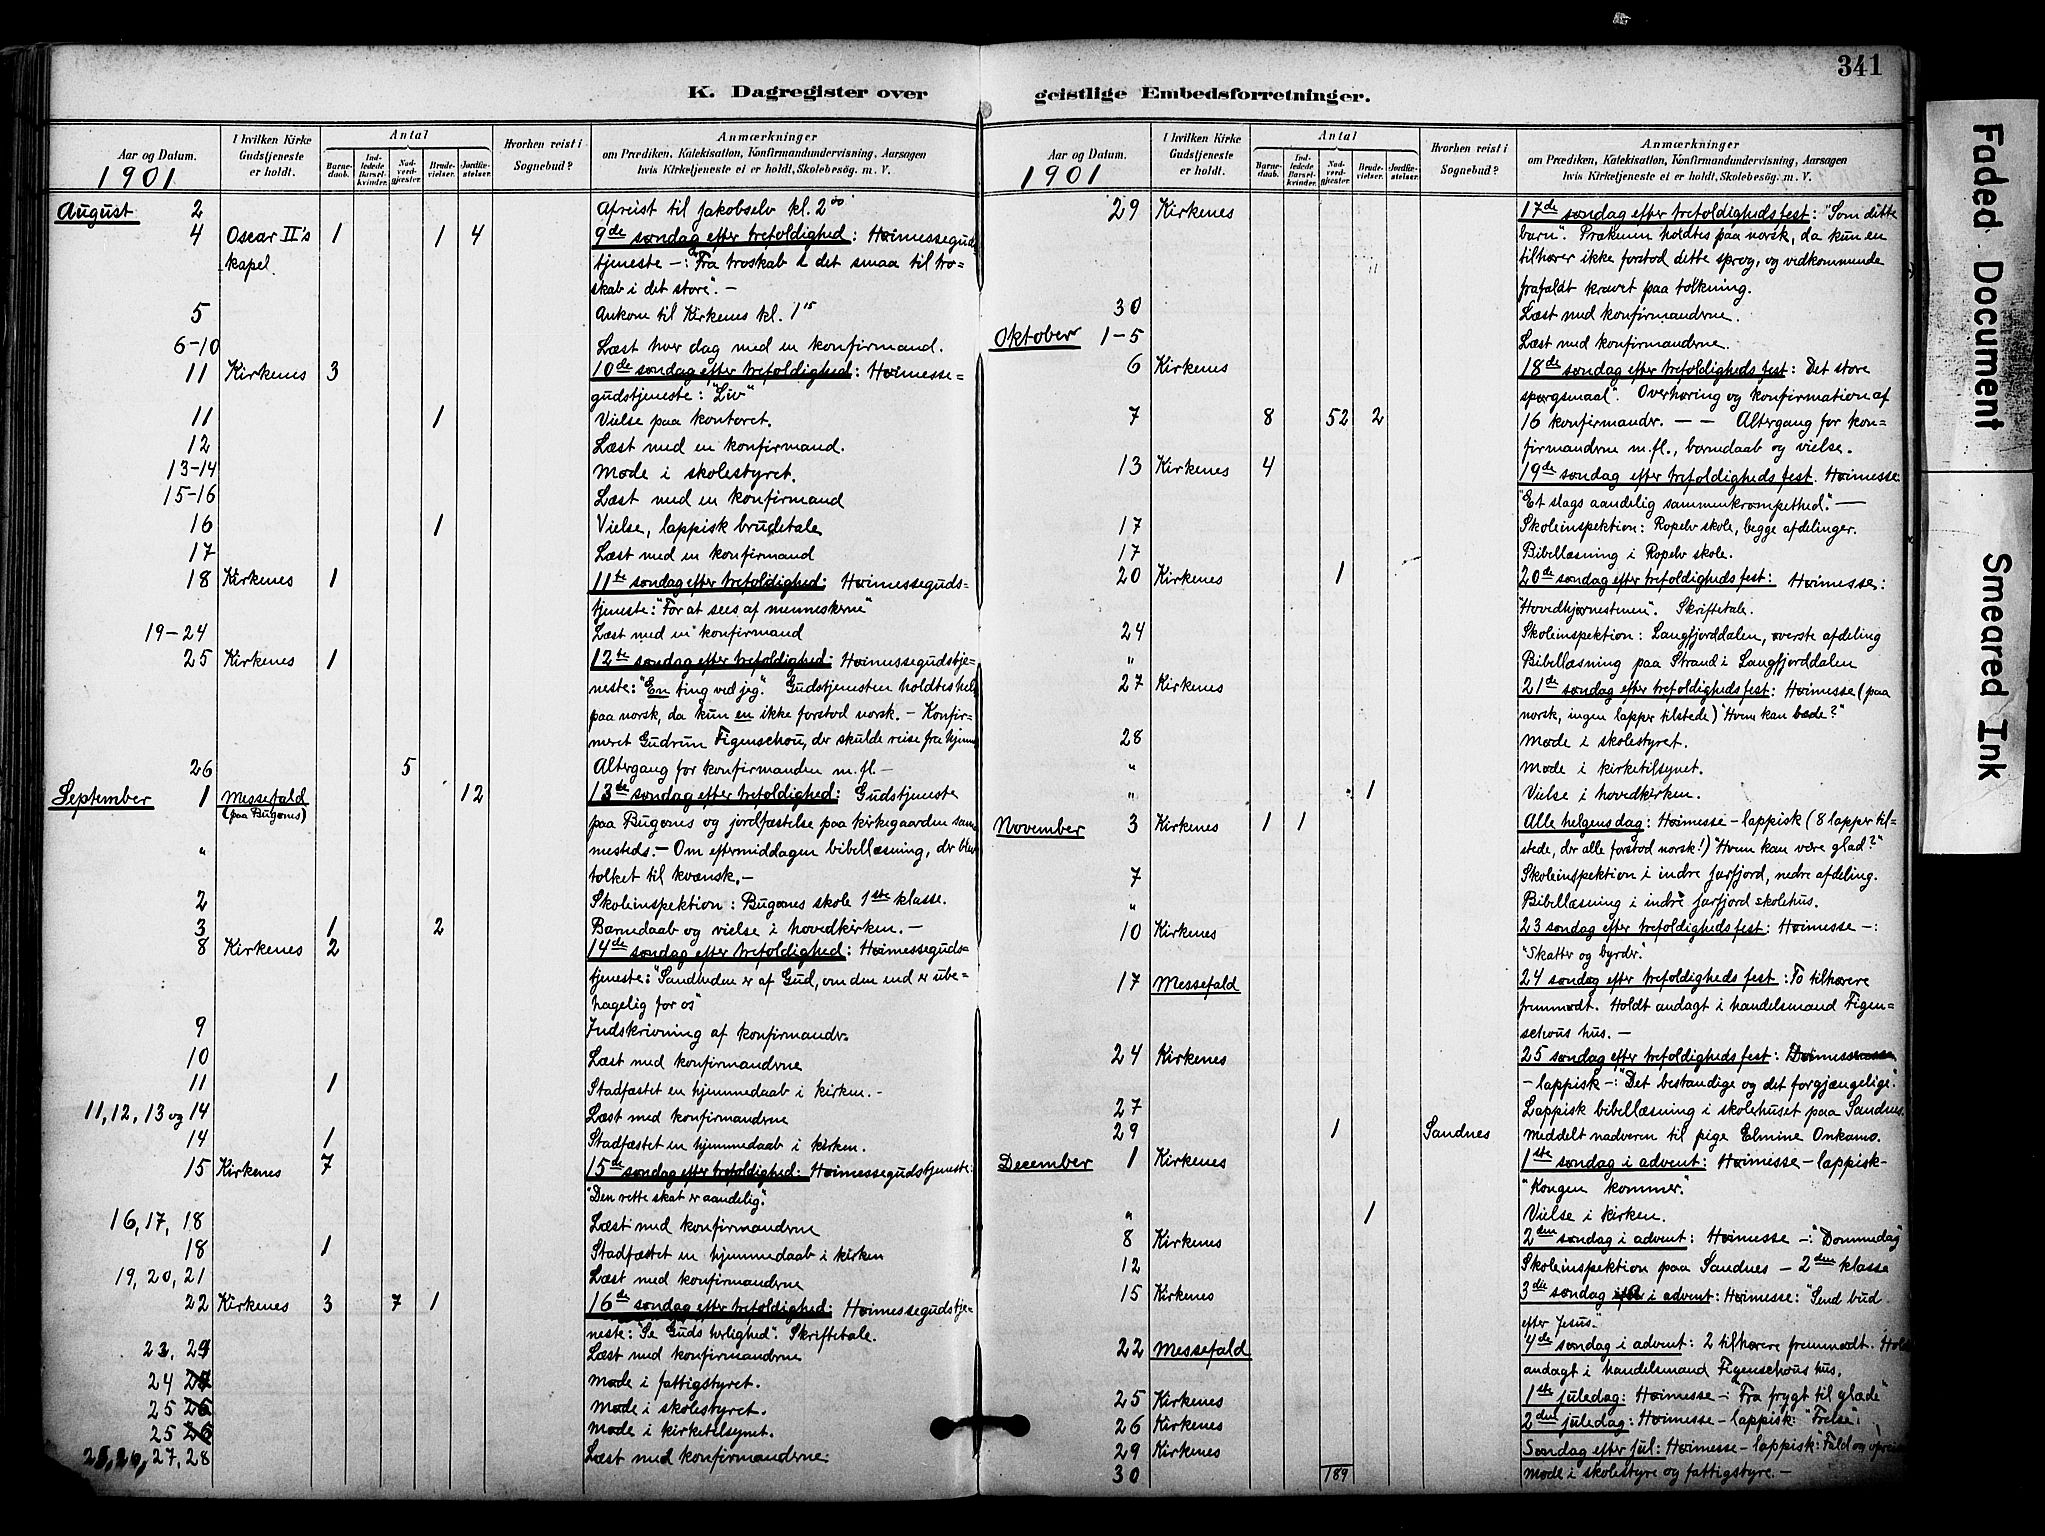 341
K. Dagregister over geistlige Embedsforretninger.
Aar og Datum.
1901
I hvilken Kirke Gudstjeneste er holdt.
Antal
Barnedaab.
Indledede Barselkvinder.
Nadverdgjæster.
Brudevielser.
Jordfæstelser.
Hvorhen reist i Sognebud?
Anmærkninger
om Prædiken, Katekisation, Konfirmandundervisning, Aarsagen
hvis Kirketjeneste ei er holdt, Skolebesøg. m. V.
August 2 Afreist til Jakobselv kl. 2⁰⁰
4 Oscar II's 1 1 4 9de søndag efter trefoldighed: Høimessegud-
kapel. tjeneste -: "Fra troskab i det smaa til tro-
skab i det store". -
5 Ankom til Kirkenes kl. 1¹⁵
6-10 Læst hver dag med en konfirmand.
11 Kirkenes 3 10de søndag efter trefoldighed: Høimesse-
gudstjeneste: "Liv"
11 1 Vielse paa kontoret.
12 Læst med en konfirmand.
13-14 Møde i skolestyret.
15-16 Læst med en konfirmand
16 1 Vielse, lappisk brudetale
17 Læst med en konfirmand
18 Kirkenes 1 11te søndag efter trefoldighed: Høimesseguds-
tjeneste: "For at sees af menneskerne"
19-24 Læst med en konfirmand
25 Kirkenes 1 12te søndag efter trefoldighed: Høimessegudstje-
neste: "En ting ved jeg". Gudstjenesten holdtes hel
paa norsk, da kun en ikke forstod norsk. - Konfir-
meret Gudrun Figenschou, der skulde reise fra hjem
26 5 Altergang for konfirmanden m. fl. -
September 1 Messefald 12 13de søndag efter trefoldighed: Gudstjeneste
(paa Bugønes) paa Bugønes og jordfæstelse paa kirkegaarden sam-
" mesteds. - Om eftermiddagen bibellæsning, der blev
tolket til kvænsk. -
2 Skoleinspektion: Bugønes skole 1ste klasse.
3 1 2 Barnedaab og vielse i hovedkirken. -
8 Kirkenes 2 14de søndag efter trefoldighed: Høimesseguds-
tjeneste: "Sandheden er af Gud, om den end er ube-
hagelig for os"
9 Indskrivning af konfirmander
10 Læst med konfirmanderne
11 1 Stadfæstet en hjemmedaab i kirken. -
11, 12, 13 og 14 Læst med konfirmanderne
14 1 Stadfæstet en hjemmedaab i kirken.
15 Kirkenes 7 15de søndag efter trefoldighed: Høimessegudstjeneste:
"Den rette skat er aandelig".
16, 17, 18 Læst med konfirmanderne
18 1 Stadfæstet en hjemmedaab i kirken
19, 20, 21 Læst med konfirmanderne
22 Kirkenes 3 7 1 16de søndag efter trefoldighed: Høimessegudstje-
neste: "Se Guds herlighed". Skriftetale.
23, 24 Læst med konfirmanderne
24 Møde i fattigstyret.
25 26 Møde i skolestyret.
25 26 Møde i kirketilsynet.
25, 26, 27, 28 Læst med konfirmanderne
Aar og Datum.
1901
I hvilken Kirke Gudstjeneste er holdt.
Antal
Barnedaab.
Indledede Barselkvinder.
Nadverdgjæster.
Brudevielser.
Jordfæstelser.
Hvorhen reist i Sognebud?
Anmærkninger
om Prædiken, Katekisation, Konfirmandundervisning, Aarsagen
hvis Kirketjeneste ei er holdt, Skolebesøg. m. V.
29 Kirkenes 17de søndag efter trefoldigheds fest: "Som dette
barn". Prækenen holdtes paa norsk, da kun en
tilhører ikke forstod dette sprog, og vedkommende
frafaldt kravet paa tolkning.
30 Læst med konfirmanderne.
Oktober 1-5 Læst med konfirmanderne.
6 Kirkenes 18de søndag efter trefoldigheds fest: Det store
spørgsmaal". Overhøring og konfirmation af
7 8 52 2 16 konfirmander. - - Altergang for kon-
firmanderne m. fl., barnedaab og vielse.
13 Kirkenes 4 19de søndag efter trefoldigheds fest. Høimesse
"Et slags aandelig sammenkrømpethed". -
17 Skoleinspektion: Ropelv skole, begge afdelinger.
17 Bibellæsning i Ropelv skole.
20 Kirkenes 1 20de søndag efter trefoldigheds fest: Høimesse:
"Hovedhjørnestenen". Skriftetale.
24 Skoleinspektion: Langfjorddalen, øverste afdeling
" Bibellæsning paa Strand i Langfjorddalen
27 Kirkenes 21de søndag efter trefoldigheds fest: Høimesse (paa
norsk, ingen lapper tilstede) "Hvem kan bede?"
28 Møde i skolestyret.
" Møde i kirketilsynet.
" 1 Vielse i hovedkirken.
November 3 Kirkenes 1 1 Alle helgens dag: Høimesse - lappisk (8 lapper til-
stede, der alle forstod norsk!) "Hvem kan være glad?"
7 Skoleinspektion i indre Jarfjord, nedre afdeling.
" Bibellæsning i indre Jarfjord skolehus.
10 Kirkenes 23 søndag efter trefoldigheds fest: Høimesse -:
"Skatter og byrder".
17 Messefald 24 søndag efter trefoldigheds fest: To tilhørere
fremmødt. Holdt andagt i handelsmand Figen-
schous hus. -
24 Kirkenes 25 søndag efter trefoldigheds fest: Høimesse
- lappisk -: "Det bestandige og det forgjængelige".
27 Lappisk bibellæsning i skolehuset paa Sandnes.
29 1 Sandnes Meddelt nadveren til pige Elmine Onkamo.
December 1 Kirkenes 1ste søndag i advent: Høimesse - lappisk -
"Kongen kommer."
" 1 Vielse i kirken.
8 Kirkenes 2den søndag i advent: Høimesse -: "Dommedag"
12 Skoleinspektion paa Sandnes - 2den klasse
15 Kirkenes 3die søndag i advent: Høimesse: "Send bud
efter Jesus".
22 Messefald 4de søndag i advent: 2 tilhørere fremmødt. Holdt
andagt i handelsmand Figenschous hus.
25 Kirkenes 1ste juledag: Høimesse - "Fra frygt til glæde"
26 Kirkenes 2den juledag: Høimesse - lappisk: "Frelse".
29 Kirkenes Søndag efter jul: Høimesse - lappisk: "Fald og opreis
30 189 Møde i skolestyre og fattigstyre. -
Faded Document
Smeared Ink